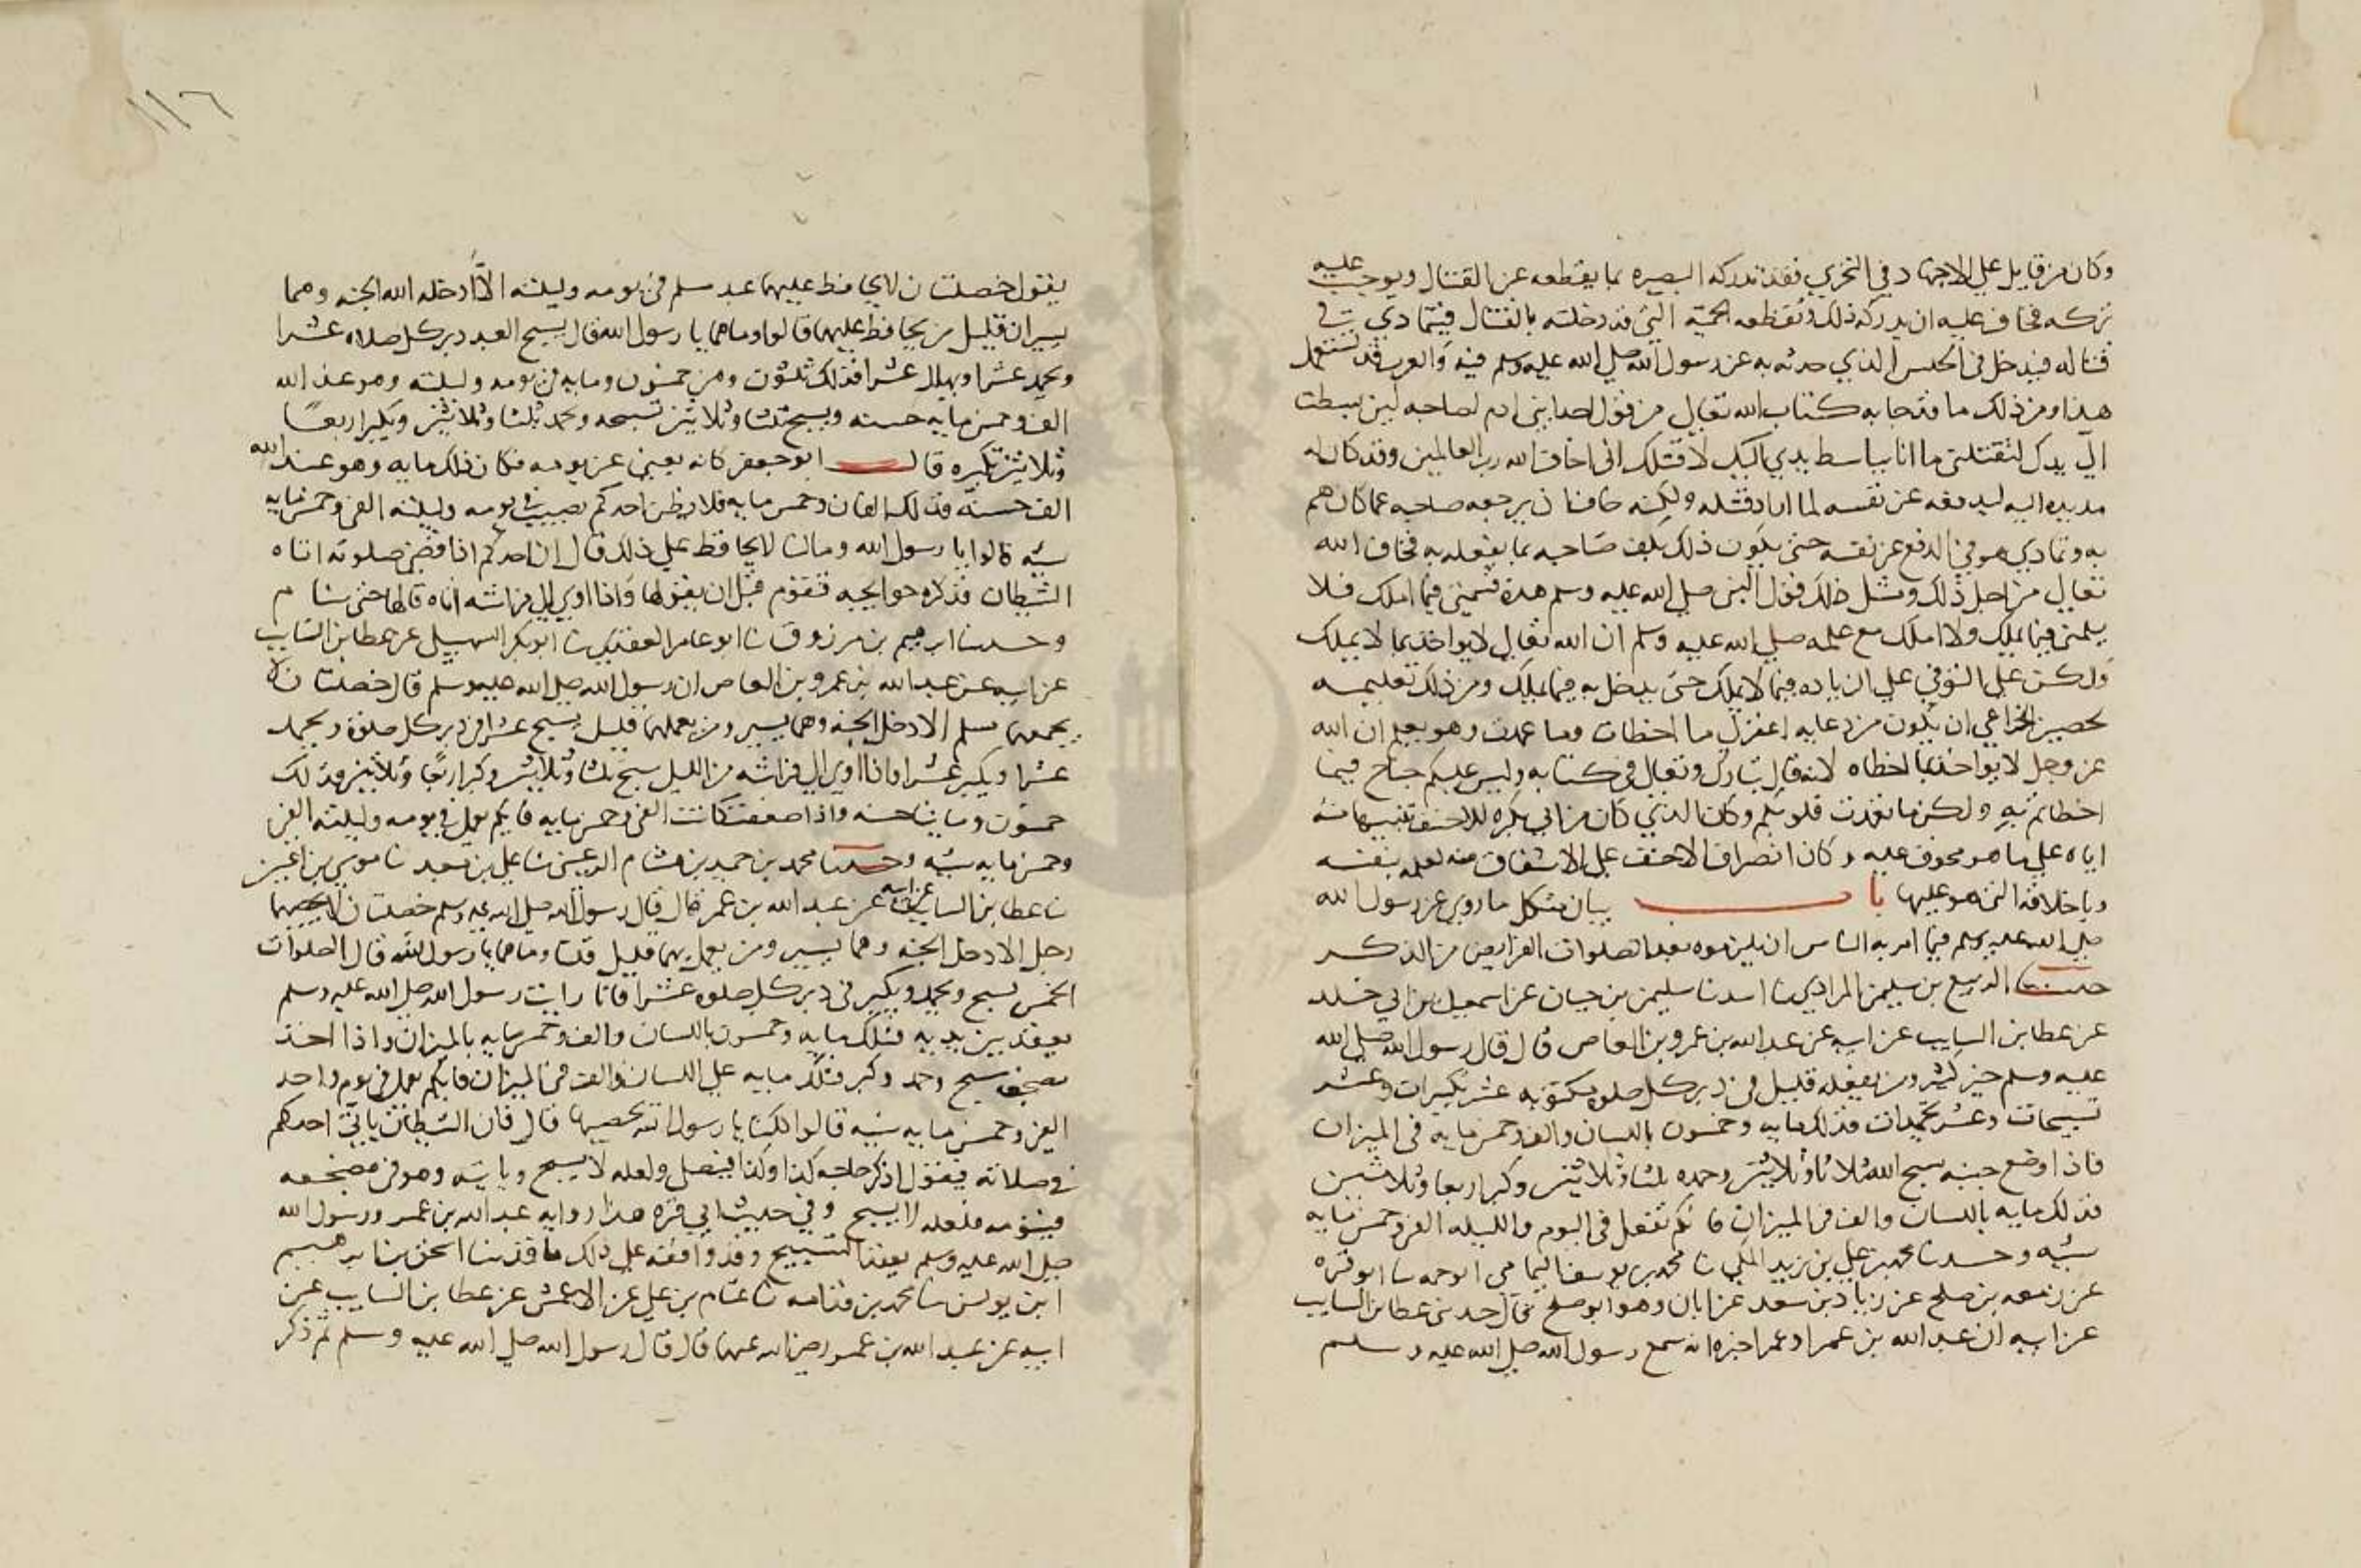 وكان من قاتل على الاجتهاد في التحري فقد تدركه البصيره بما يقطعه عن القتال ويوجب عليه
تركه فخاف عليه ان يدركه ذلك وتقطعه الحمية التي قد دخلته بالقتال فيتمادي في
قتاله فيدخل في الذي حدثه به عن رسول الله صلي الله عليه وسلم فيه والعرب قد تستعمل
هذا ومن ذلك ما قد جا به كتاب الله تعالي من قول احد ابني ادم لصاحبه لين بسطت
الي يدك لتقتلني ما انا بباسط يدي اليك لاقتلك اني اخاف الله رب العالمين وقد كان له
مد يده اليه ليدفعه عن نفسه لما اراد قتله ولكنه خاف ان يرجعه صاحبه عما كان هم
به وتمادي هو في الدفع عن نفسه حتي يكون ذلك يلف صاحبه بما يفعله به فخاف الله
تعالي من اجل ذلك ومثل ذلك قول النبي صلي الله عليه وسلم هذه قسمتي فيما املك فلا
تلمني فيما تملك ولا املك مع علمه صلي الله عليه وسلم ان الله تعالي لا يواخذ بما لا يملك
ولكن علي التوقي علي الزياده فيما لا يملك حتي يدخل به فيما يملك ومن ذلك تعليمه
لحصين الخزاعي ان يكون من دعايه اغفر لي ما اخطات وما عمدت وهو يعلم ان الله
عز وجل لا يواخذ بما اخطاه لانه قال تبارك وتعالي في كتابه وليس عليكم جناح فيما
اخطاتم به ولكن ما تعمدت قلوبكم وكان الذي كان من ابي بكره للاحنف تنبيها منه
اياه علي ما هو مخوف عليه وكان انصراف الاحنف علي الاشفاق منه لعلمه بنفسه
وباخلاقه التي هو عليها باب بيان مشكل ما روي عن رسول الله
صلي الله عليه وسلم فيما امر به الناس ان يلزموه بعد الصلوات الفرايض من الذكر
حدثنا الربيع بن سليمن المرادي ثنا اسد ثنا سليمن بن حيان عن اسمعيل بن ابي خلد
عن عطا بن السايب عن ابيه عن عبد الله بن عمرو بن العاص قال قال رسول الله صلي الله
عليه وسلم خير كثير ومن يفعله قليل في دبر كل صلوه مكتوبه عشر تكبيرات وعشر
تسبيحات وعشر تحميدات فذلك مايه وخمسون باللسان والف وخمس مايه في الميزان
فاذا وضع جنبه سبح الله ثلاثا وثلاثين وحمده ثلثا وثلاثين وكبر اربعا وثلاثين
فذلك مايه باللسان والف في الميزان فايكم يفعل في اليوم والليله الفين وخمس مايه
سيئه وحدثنا محمد بن علي بن زيد المكي ثنا محمد بن يوسف ثنا ابو قره
عن زمعه بن صلح عن زياد بن سعد عن ابان وهو ابو صلح قال حدثني عطا بن السايب
عن ابيه ان عبد الله بن عمر او عمرا اخبره انه سمع رسول الله صلي الله عليه وسلم
يقول خصلتان لا يحافظ عليهما عبد مسلم في يومه وليلته الا ادخله الله الجنه وهما
يسيران قليل من يحافظ عليهما قالوا وما هما يا رسول الله قال يسبح العبد دبر كل صلاه عشرا
ويحمد عشرا ويهلل عشرا فذلك ثلثون وهن خمسون ومايه في يومه وليلته وهو عند الله
الف وخمس مايه حسنه ويسبح ثلثا وثلاثين تسبيحه ويحمد ثلثا وثلاثين ويكبر اربعا
وثلاثين تكبيره قال ابو جعفر كانه يعني عن يومه فكان ذلك مايه وهو عند الله
الف حسنة فذلك الفان وخمس مايه فلا يظن احدكم يصيب في يومه وليلته الفي وخمس مايه
سيه قالوا يا رسول الله وما لنا لا يحافظ علي ذلك قال ان احدكم اذا قضي صلوته اتاه
الشيطان فذكره حوايجه فتقوم قبل ان يقولها واذا اوي الي فراشه اتاه قالها حتي ينام
وحدثنا ابرهيم بن مرزوق ثنا ابو عامر العقدي ثنا ابو بكر النهشلي عن عطا بن السايب
عن ابيه عن عبد الله بن عمرو بن العاص ان رسول الله صلي الله عليه وسلم قال خصلتان لا
يجمعهما مسلم الا دخل الجنه وهما يسير ومن يعملهما قليل يسبح عشرا في دبر كل صلوة ويحمد
عشرا ويكبر عشرا واذا اوي الي فراشه من الليل سبح ثلثا وثلاثين وكبر اربعا وثلاثين فذلك
خمسون ومايتا حسنه واذا ضعفت كانت الفي وخمس مايه فايكم يعمل في يومه وليلته الفي
وخمس مايه سيه وحدثنا محمد بن حميد بن هشام الرعيني ثنا علي بن معبد ثنا موسي بن اعين
ثنا عطا بن السايب عن ابيه عن عبد الله بن عمر قال قال رسول الله صلي الله عليه وسلم خصلتان لا يحصيهما
رجل الا دخل الجنه وهما يسير ومن يعمل بهما قليل قلنا وما هما يا رسول الله قال الصلوات
الخمس يسبح ويحمد ويكبر في دبر كل صلوه عشرا فانا رايت رسول الله صلي الله عليه وسلم
يعقد بين يديه فتلك مايه وخمسون باللسان والف وخمس مايه بالميزان واذا اخذ
مضجعه سبح وحمد وكبر فتلك مايه علي اللسان والف في الميزان فايكم يعمل في يوم واحد
الفين وخمس مايه سيه قالوا لكنا يا رسول الله نحصيها قال فان الشيطان ياتي احدكم
في صلاته فيقول اذكر حاجه كذا وكذا فيفعل ولعله لا يسبح وياتيه وهو في مضجعه
فينومه فلعله لا يسبح وفي حديث ابي قره هذا روايه عبد الله بن عمر ورسول الله
صلي الله عليه وسلم يعقد التسبيح وقد وافقه علي ذلك ما قد ثنا اسحق بن ابرهيم
ابن يونس ثنا محمد بن قدامه ثنا عثام بن علي عن الاعمش عن عطا بن السايب عن
ابيه عن عبد الله بن عمر رضي الله عنهما قال قال رسول الله صلي الله عليه وسلم ثم ذكر